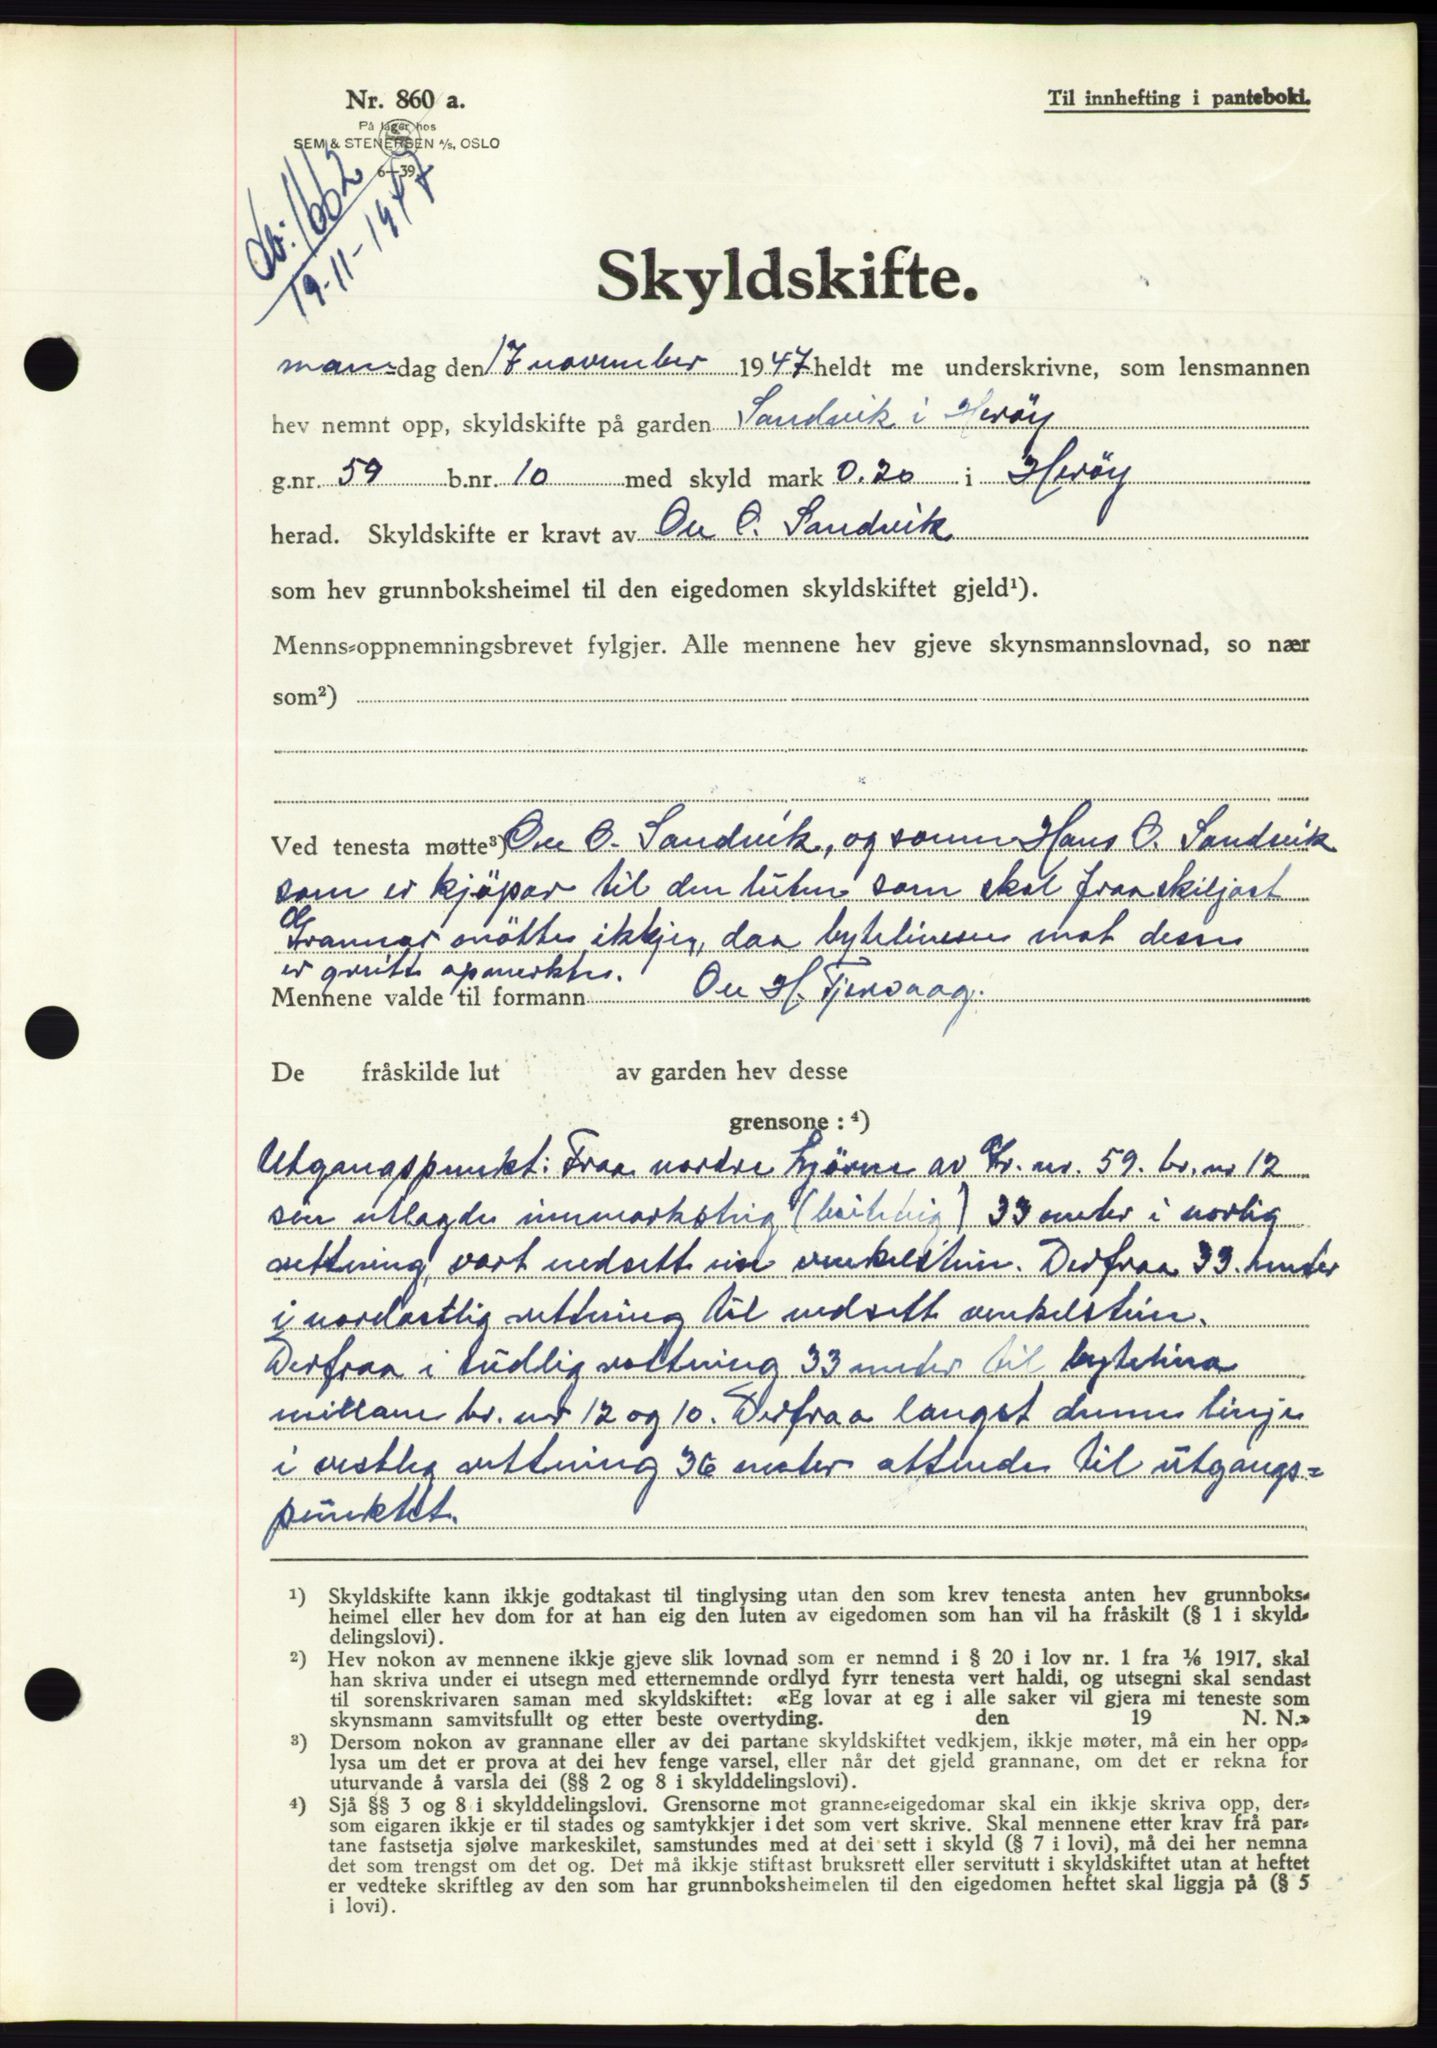 Nr. 860 a.
Til innhefting i panteboki.
På lager hos
SEM & STENERSEN A/S, OSLO
6—39.
1662
19-11-1947
Skyldskifte.
man=dag den 17 november 1947 heldt me underskrivne, som lensmannen
hev nemnt opp, skyldskifte på garden Sandvik i Heröy
g.nr. 59 b.nr. 10 med skyld mark 0.20 i Heröy
herad. Skyldskifte er kravt av Ove O. Sandvik
som hev grunnboksheimel til den eigedomen skyldskiftet gjeld¹).
Menns=oppnemningsbrevet fylgjer. Alle mennene hev gjeve skynsmannslovnad, so nær
som²)
Ved tenesta møtte³) Ove O. Sandvik, og sonen Hans O. Sandvik
som er kjöpar til den luten som skal fraaskiljast
Grannar mötte ikkje, daa bytelinesen mot desse
er greitt opmerkte.
Mennene valde til formann Ove H. Tjervaag.
De fråskilde lut av garden hev desse
grensone : ⁴)
Utgangspunkt: Fraa nordre hjörne av Gr. nr. 59. br. nr 12
sin utlagde innmarksteig (beiteteig) 33 meter i norlig
rettning, vart nedsett ein vinkelstein. Derfraa 33. meter
i nordostlig rettning til nedsett vinkelstein.
Derfraa i südlig rettning 33 meter til bytelina
millom br. nr 12 og 10. Derfraa langst denne linje
i vestleg rettning 36 meter attende til ütgangs=
punktet.
¹) Skyldskifte kann ikkje godtakast til tinglysing utan den som krev tenesta anten hev grunnboks=
heimel eller hev dom for at han eig den luten av eigedomen som han vil ha fråskilt (§ 1 i skyld=
delingslovi).
²) Hev nokon av mennene ikkje gjeve slik lovnad som er nemnd i § 20 i lov nr. 1 fra 1/6 1917, skal
han skriva under ei utsegn med etternemnde ordlyd fyrr tenesta vert haldi, og utsegni skal sendast
til sorenskrivaren saman med skyldskiftet: «Eg lovar at eg i alle saker vil gjera mi teneste som
skynsmann samvitsfullt og etter beste overtyding. den 19 N. N.»
³) Dersom nokon av grannane eller av dei partane skyldskiftet vedkjem, ikkje møter, må ein her opp=
lysa um det er prova at dei hev fenge varsel, eller når det gjeld grannane, om det er rekna for
uturvande å varsla dei (§§ 2 og 8 i skylddelingslovi).
⁴) Sjå §§ 3 og 8 i skylddelingslovi. Grensorne mot granne=eigedomar skal ein ikkje skriva opp, der=
som eigaren ikkje er til stades og samtykkjer i det som vert skrive. Skal mennene etter krav frå par=
tane fastsetja sjølve markeskilet, samstundes med at dei sett i skyld (§ 7 i lovi), må dei her nemna
det som trengst om det og. Det må ikkje stiftast bruksrett eller servitutt i skyldskiftet utan at heftet
er vedteke skriftleg av den som har grunnboksheimelen til den eigedomen heftet skal liggja på (§ 5
i lovi).